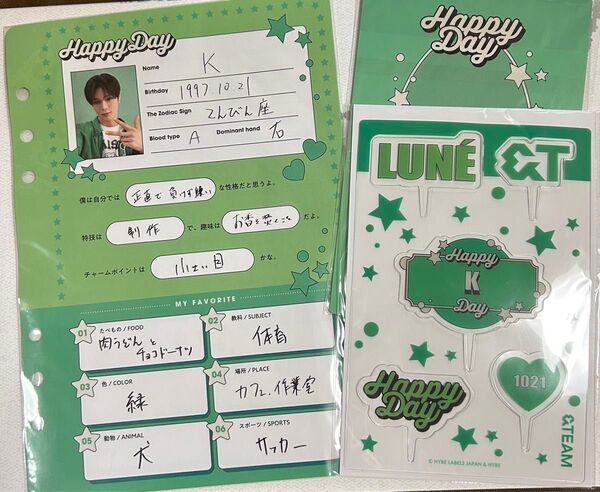 Happy Day
Name K
Birthday 1997.10.21
The Zodiac Sign てんびん座
Blood type A Dominant hand 右
僕は自分では 正直で 負けず嫌い な性格だと思うよ。
特技は 制作 で、趣味は お香を焚くこと だよ。
チャームポイントは 小さい目 かな。
MY FAVORITE
01 たべもの / FOOD
肉うどんと
チョコドーナツ
02 教科 / SUBJECT
体育
03 色 / COLOR
緑
04 場所 / PLACE
カフェ、作業室
05 動物 / ANIMAL
犬
06 スポーツ / SPORTS
サッカー
Happy
Day
LUNÉ &T
Happy
K
Day
Happy
Day
1021
&TEAM
© HYBE LABELS JAPAN & HYBE